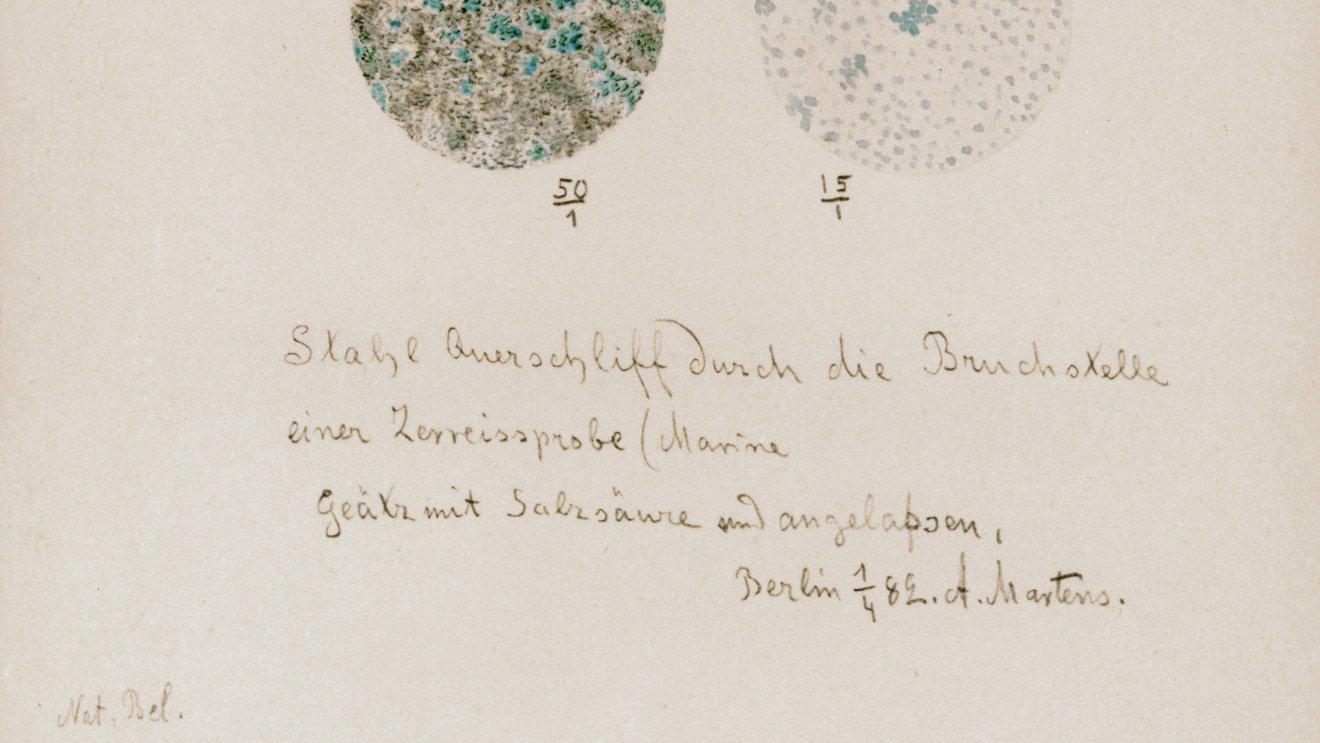 50/1 15/1
Stahl Querschliff durch die Bruchstelle
einer Zerreissprobe (Marine
Geätzt mit Salzsäure und angelaßsen,
Berlin 1/4 82. A. Martens.
Nat. Bel.